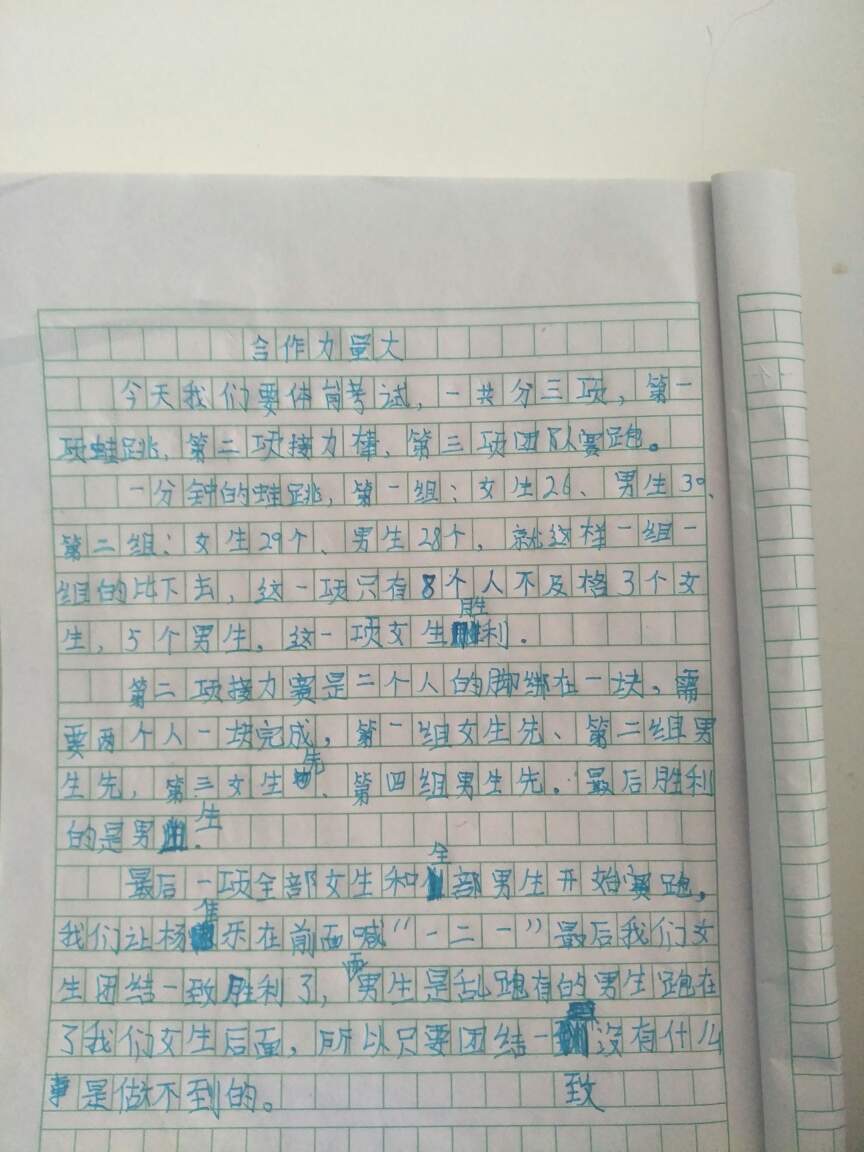 合作力量大
今天我们要体育考试，一共分三项，第一
项蛙跳，第二项接力棒，第三项团队赛跑。
一分钟的蛙跳，第一组：女生26、男生30、
第二组：女生29个、男生28个，就这样一组一
组的比下去，这一项只有8个人不及格3个女
生，5个男生，这一项女生胜利．
第二项接力赛是二个人的脚绑在一块，需
要两个人一块完成，第一组女生先、第二组男
生先，第三女生先、第四组男生先．最后胜利
的是男生．
最后一项全部女生和全部男生开始赛跑，
我们让杨佳乐在前面喊“一二一”最后我们女
生团结一致胜利了，而男生是乱跑有的男生跑在
了我们女生后面，所以只要团结一致没有什么
事是做不到的。